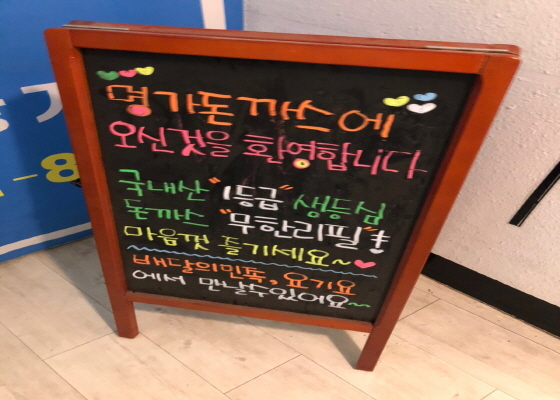 명가돈까스에
오신것을 환영합니다
국내산 "1등급" 생등심
돈까스 "무한리필"!
마음껏 즐기세요~
배달의민족, 요기요
에서 만날수있어요~